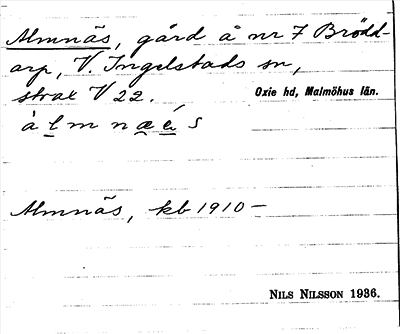 Almnäs, gård å nr 7 Brödd-
arp, V. Ingelstads sn,
strax V 22.
Oxie hd, Malmöhus län.
àlmnæ̀s
Almnäs, kb 1910 –
NILS NILSSON 1936.